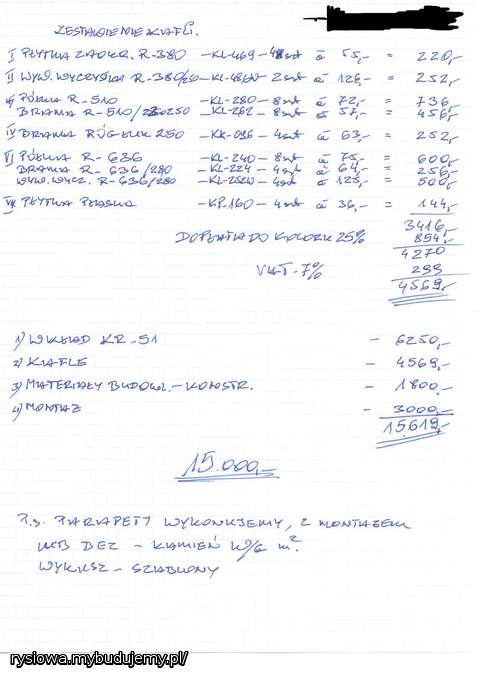 ZESTAWIENIE KAFLI.
I PŁYTKA ZAOKR. R-380 - KL-469 - 4szt á 55,- = 220,-
II WYW. WYCZYSTKA R-380/ - 2szt á 126,- = 252,-
PÓŁKA R-510 - KL-280 - 8szt á 72,- = 736,-
BRAMA R-510/ 250 - KL-262 - 8szt á 57,- = 456,-
IV BRAMKA 250 - KK-096 - 4szt á 63,- = 252,-
VI PÓŁKA R-636 - KL-240 - 8szt á 75,- = 600,-
BRAMA R-636/280 - KL-224 - 4szt á 64,- = 256,-
WYW. WYCZ. R-636/280 - 4szt á 125,- = 500,-
VII PŁYTKA PŁASKA - KP.160 - 4szt á 36,- = 144,-
3416,-
DOPŁATA DO KOLORU 25% 854,-
4270
VAT - 7% 299
4569,-
1) WKŁAD KR-51 - 6250,-
2) KAFLE - 4569,-
3) MATERIAŁY BUDOWL. - KONSTR. - 1800,-
4) MONTAŻ - 3000,-
15619,-
15.000,-
P.s. PARAPETY WYKONUJEMY, Z MONTAŻEM
LUB BEZ - KAMIEŃ W/G m².
WYKUSZ - SZABLONY
rysiowa.mybudujemy.pl/